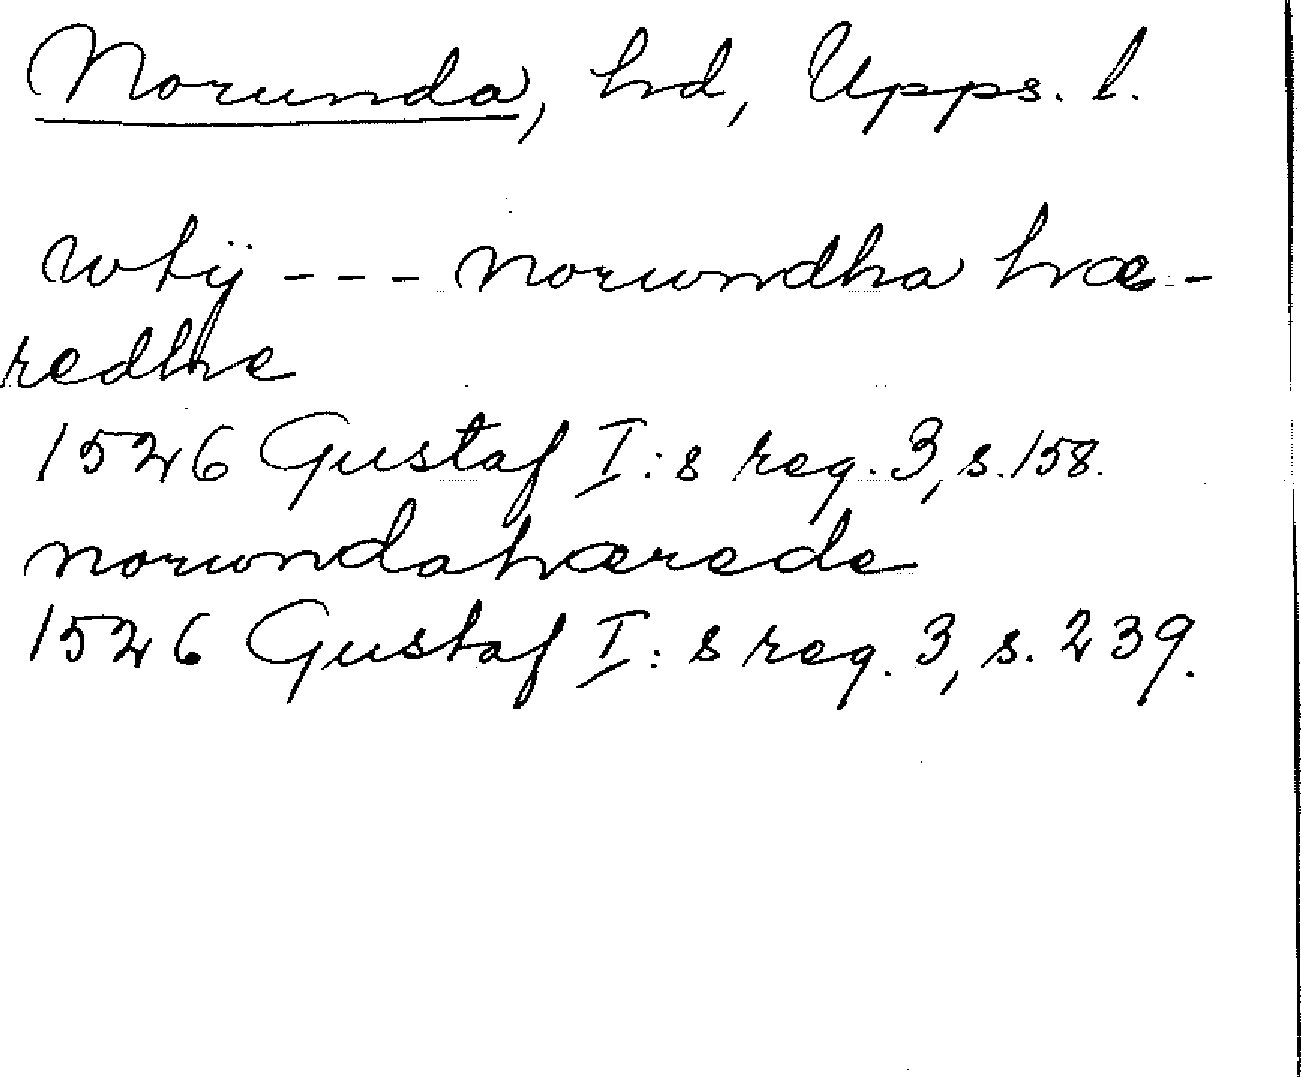 Norunda, hd, Upps. l.
wtij --- norwndha hræ-
redhe
1526 Gustaf I:s reg. 3, s. 158.
norwndahærede
1526 Gustaf I:s reg. 3, s. 239.